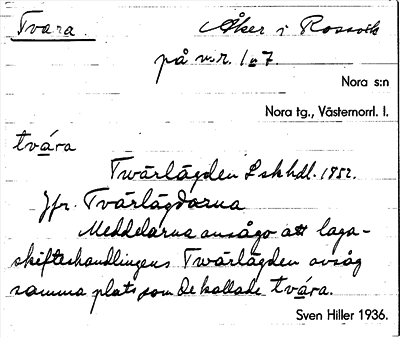 Tvara.
Åker i Rossvik
på nr. 1 o 7.
Nora s:n
Nora tg., Västernorrl. l.
tvára
Twärlägden Lskhdl. 1852.
Jfr. Tvärlägdorna
Meddelarna ansågo att laga-
skifteshandlingens Twärlägden avsåg
samma plats som de kallade tvára.
Sven Hiller 1936.